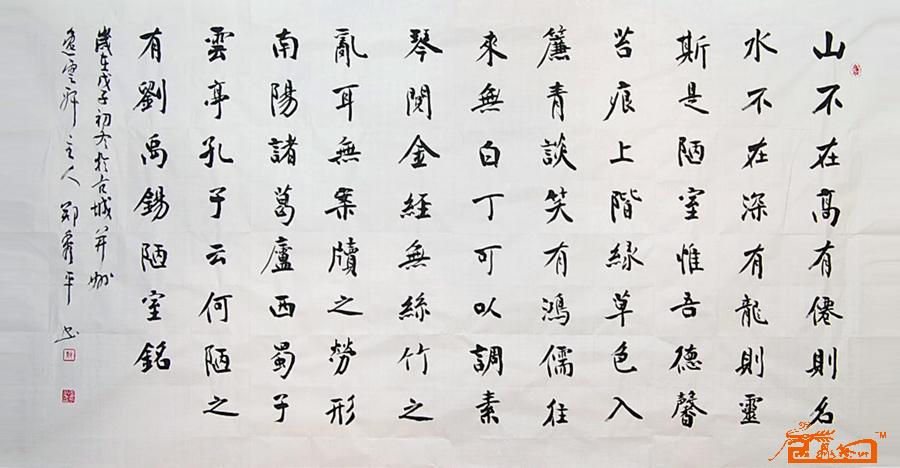 山不在高有僊則名
水不在深有龍則靈
斯是陋室惟吾德馨
苔痕上階綠草色入
簾青談笑有鴻儒往
來無白丁可以調素
琴閱金經無絲竹之
亂耳無案牘之勞形
南陽諸葛廬西蜀子
雲亭孔子云何陋之
有劉禹錫陋室銘
歲在戊子初冬於古城并州
逸雲軒主人